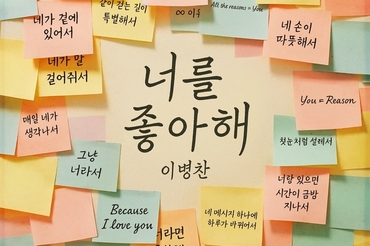 네가 곁에
있어서
같이 걷는 길이
특별해서
∞ 이유
All the reasons = You
네 손이
따뜻해서
네가 말
걸어줘서
너를
좋아해
이병찬
You = Reason
매일 네가
생각나서
첫눈처럼 설레서
그냥
너라서
너랑 있으면
시간이 금방
지나서
Because
I love you
너라면
네 메시지 하나에
하루가 바뀌어서